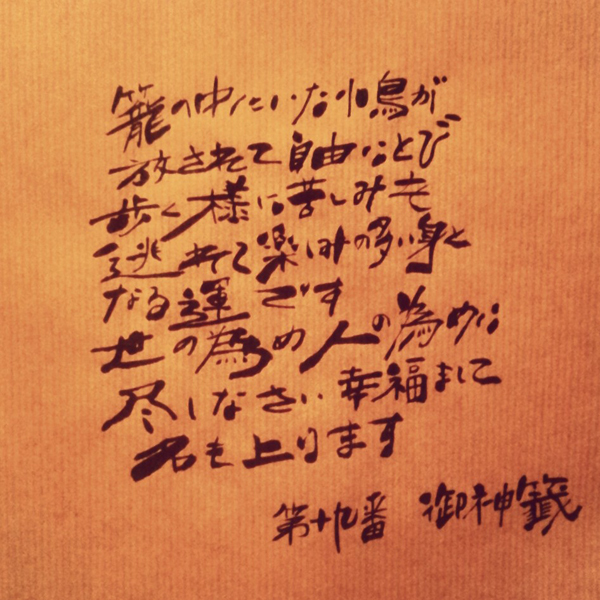 籠の中にいた小鳥が
放されて自由にとび
歩く様に苦しみも
逃れて楽しみの多い身と
なる運です
世の為め人の為めに
尽しなさい幸福まして
名も上ります
第十九番 御神籤